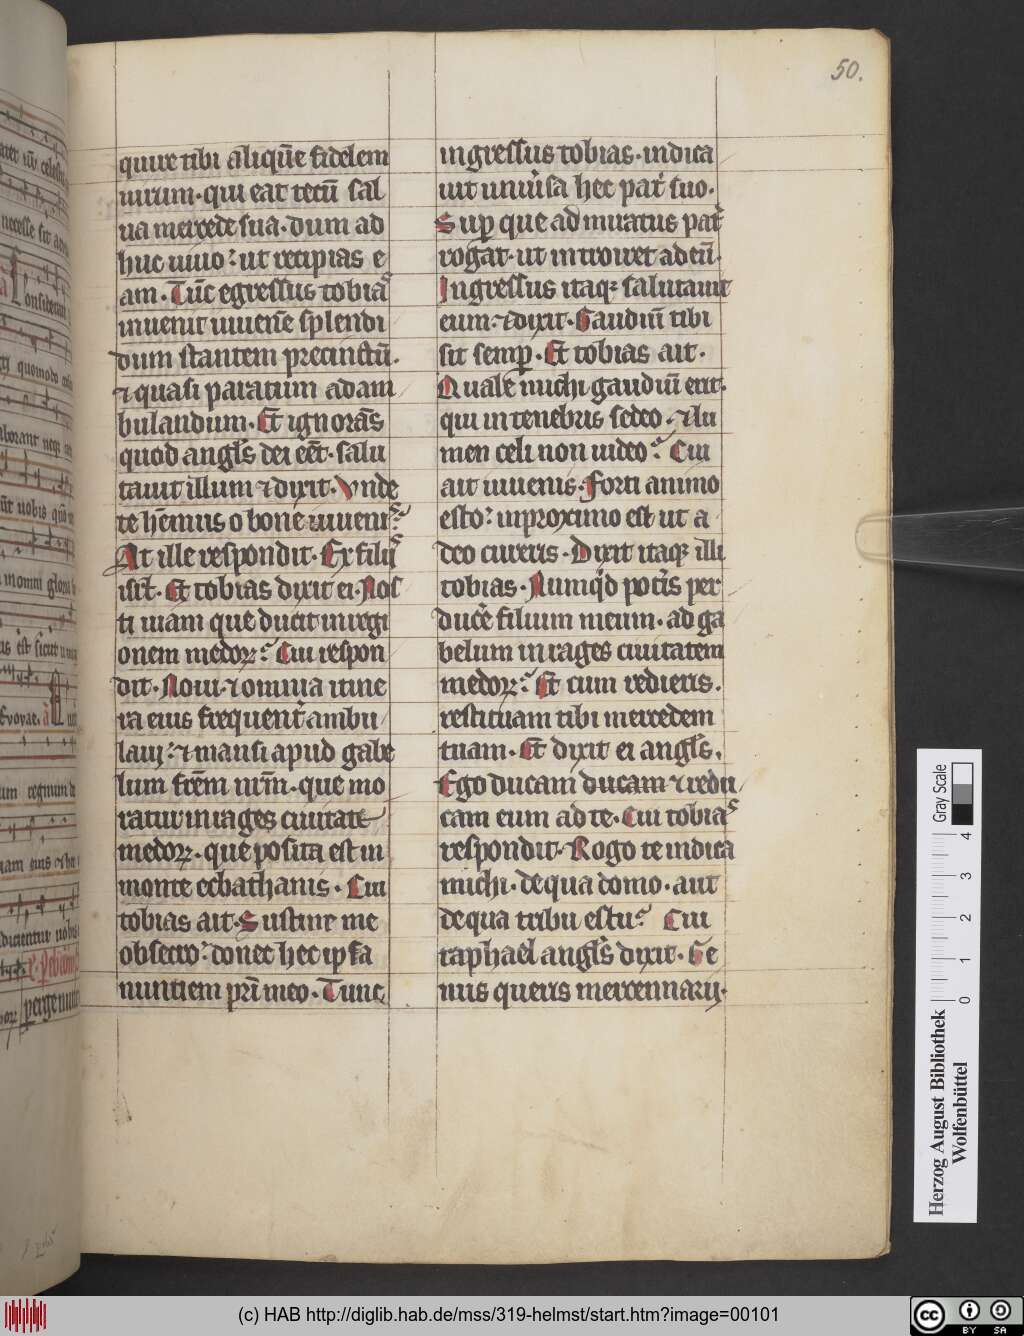 50.
quire tibi aliquē fidelem
uirum·qui eat tecū sal
ua mercede sua·dum ad
huc uiuo:ut recipias e
am·Tūc egressus tobias
inuenit iuuenē splendi
dum stantem precinctū·
⁊ quasi paratum ad am
bulandum·Et ignorās
quod angl's dei eēt·salu
tauit illum ⁊ dixit·Vnde
te hēmus o bone iuuenis?
At ille respondit·Ex filijs
isrl·Et tobias dixit ei·Nos
ti uiam que ducit in regi
onem medoꝝ? Cui respon
dit·Noui·⁊ omnia itine
ra eius frequent̾ ambu
laui:⁊ mansi apud gabe
lum frēm nrm̄·que mo
ratur in rages ciuitate
medoꝝ·que posita est in
monte ecbathanis·Cui
tobias ait·Sustine me
obsecro:donec hec ipsa
nuntiem pr̄i meo·Tunc
ingressus tobias·indica
uit uniu̾sa hec pat̾ suo·
Sup̱ que admiratus pat̾
rogat·ut introiret ad eū·
Ingressus itaqꝫ salutauit
eum·⁊ dixit·Gaudiū tibi
sit semp̱·Et tobias ait·
Quale michi gaudiū erit·
qui in tenebris sedeo·⁊ lu
men celi non uideo? Cui
ait iuuenis·Forti animo
esto:inproximo est ut a
deo cureris·Dixit itaqꝫ illi
tobias·Numqͥd pot̾is per
duce̾ filium meum·ad ga
belum in rages ciuitatem
medoꝝ? Et cum redieris·
restituam tibi mercedem
tuam·Et dixit ei angl's·
Ego ducam ducam ⁊ redu
cam eum ad te·Cui tobias
respondit·Rogo te indica
michi·de qua domo·aut
de qua tribu es tu? Cui
raphael angl's dixit·Ge
nus queris mercennarij·
Gray Scale
0 1 2 3 4
Herzog August Bibliothek
Wolfenbüttel
(c) HAB http://diglib.hab.de/mss/319-helmst/start.htm?image=00101
cc BY SA